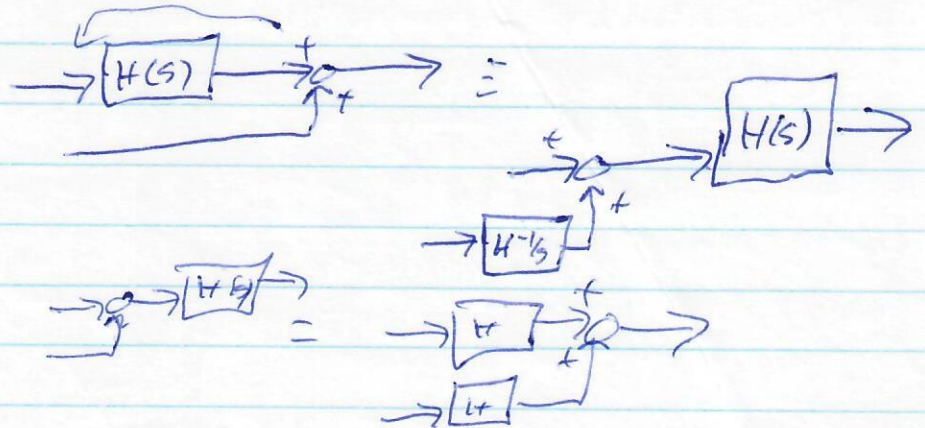 H(s) + + ≡
+ + H(s)
H⁻¹(s)
H(s) = H + +
H